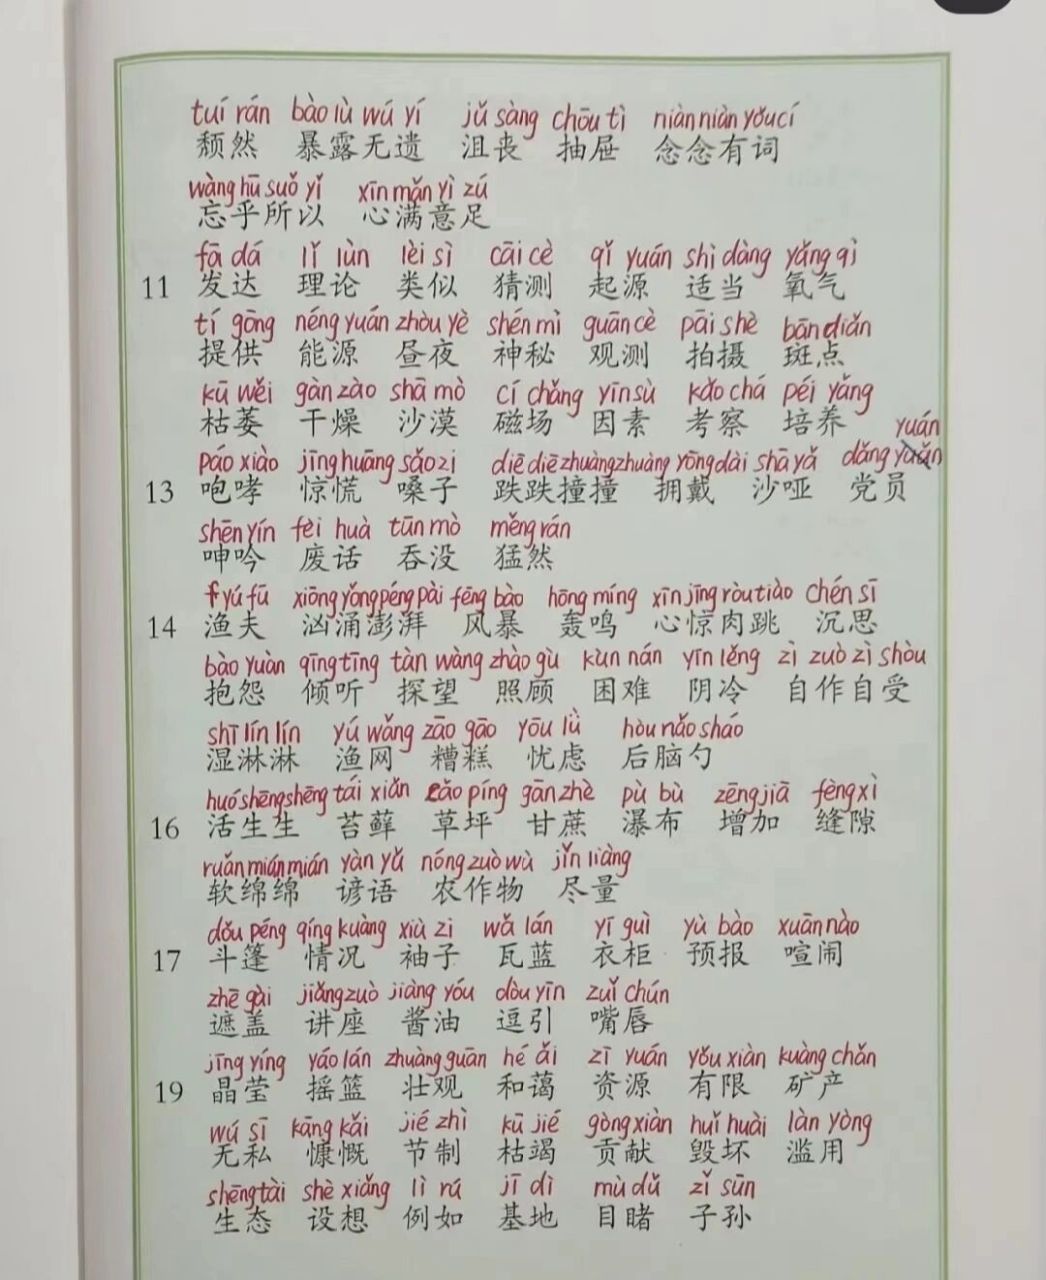 tuí rán bào lù wú yí jǔ sàng chōu tì niàn niàn yǒu cí
颓然 暴露无遗 沮丧 抽屉 念念有词
wàng hū suǒ yǐ xīn mǎn yì zú
忘乎所以 心满意足
fā dá lǐ lùn lèi sì cāi cè qǐ yuán shì dàng yǎng qì
11 发达 理论 类似 猜测 起源 适当 氧气
tí gōng néng yuán zhòu yè shén mì guān cè pāi shè bān diǎn
提供 能源 昼夜 神秘 观测 拍摄 斑点
kū wěi gàn zào shā mò cí chǎng yīn sù kǎo chá péi yǎng
枯萎 干燥 沙漠 磁场 因素 考察 培养
yuán
páo xiào jīng huāng sǎo zi diē diē zhuàng zhuàng yōng dài shā yǎ dǎng yuǎn
13 咆哮 惊慌 嗓子 跌跌撞撞 拥戴 沙哑 党员
shēn yín fèi huà tūn mò měng rán
呻吟 废话 吞没 猛然
yú fū xiōng yǒng péng pài fēng bào hōng míng xīn jīng ròu tiào chén sī
14 渔夫 汹涌澎湃 风暴 轰鸣 心惊肉跳 沉思
bào yuàn qīng tīng tàn wàng zhào gù kùn nán yīn lěng zì zuò zì shòu
抱怨 倾听 探望 照顾 困难 阴冷 自作自受
shī lín lín yú wǎng zāo gāo yōu lǜ hòu nǎo sháo
湿淋淋 渔网 糟糕 忧虑 后脑勺
huó shēng shēng tái xiǎn cǎo píng gān zhè pù bù zēng jiā fèng xì
16 活生生 苔藓 草坪 甘蔗 瀑布 增加 缝隙
ruǎn mián mián yàn yǔ nóng zuò wù jǐn liàng
软绵绵 谚语 农作物 尽量
dǒu péng qíng kuàng xiù zi wǎ lán yī guì yù bào xuān nào
17 斗篷 情况 袖子 瓦蓝 衣柜 预报 喧闹
zhē gài jiǎng zuò jiàng yóu dòu yīn zuǐ chún
遮盖 讲座 酱油 逗引 嘴唇
jīng yíng yáo lán zhuàng guān hé ǎi zī yuán yǒu xiàn kuàng chǎn
19 晶莹 摇篮 壮观 和蔼 资源 有限 矿产
wú sī kāng kǎi jié zhì kū jié gòng xiàn huǐ huài làn yòng
无私 慷慨 节制 枯竭 贡献 毁坏 滥用
shēng tài shè xiǎng lì rú jī dì mù dǔ zǐ sūn
生态 设想 例如 基地 目睹 子孙